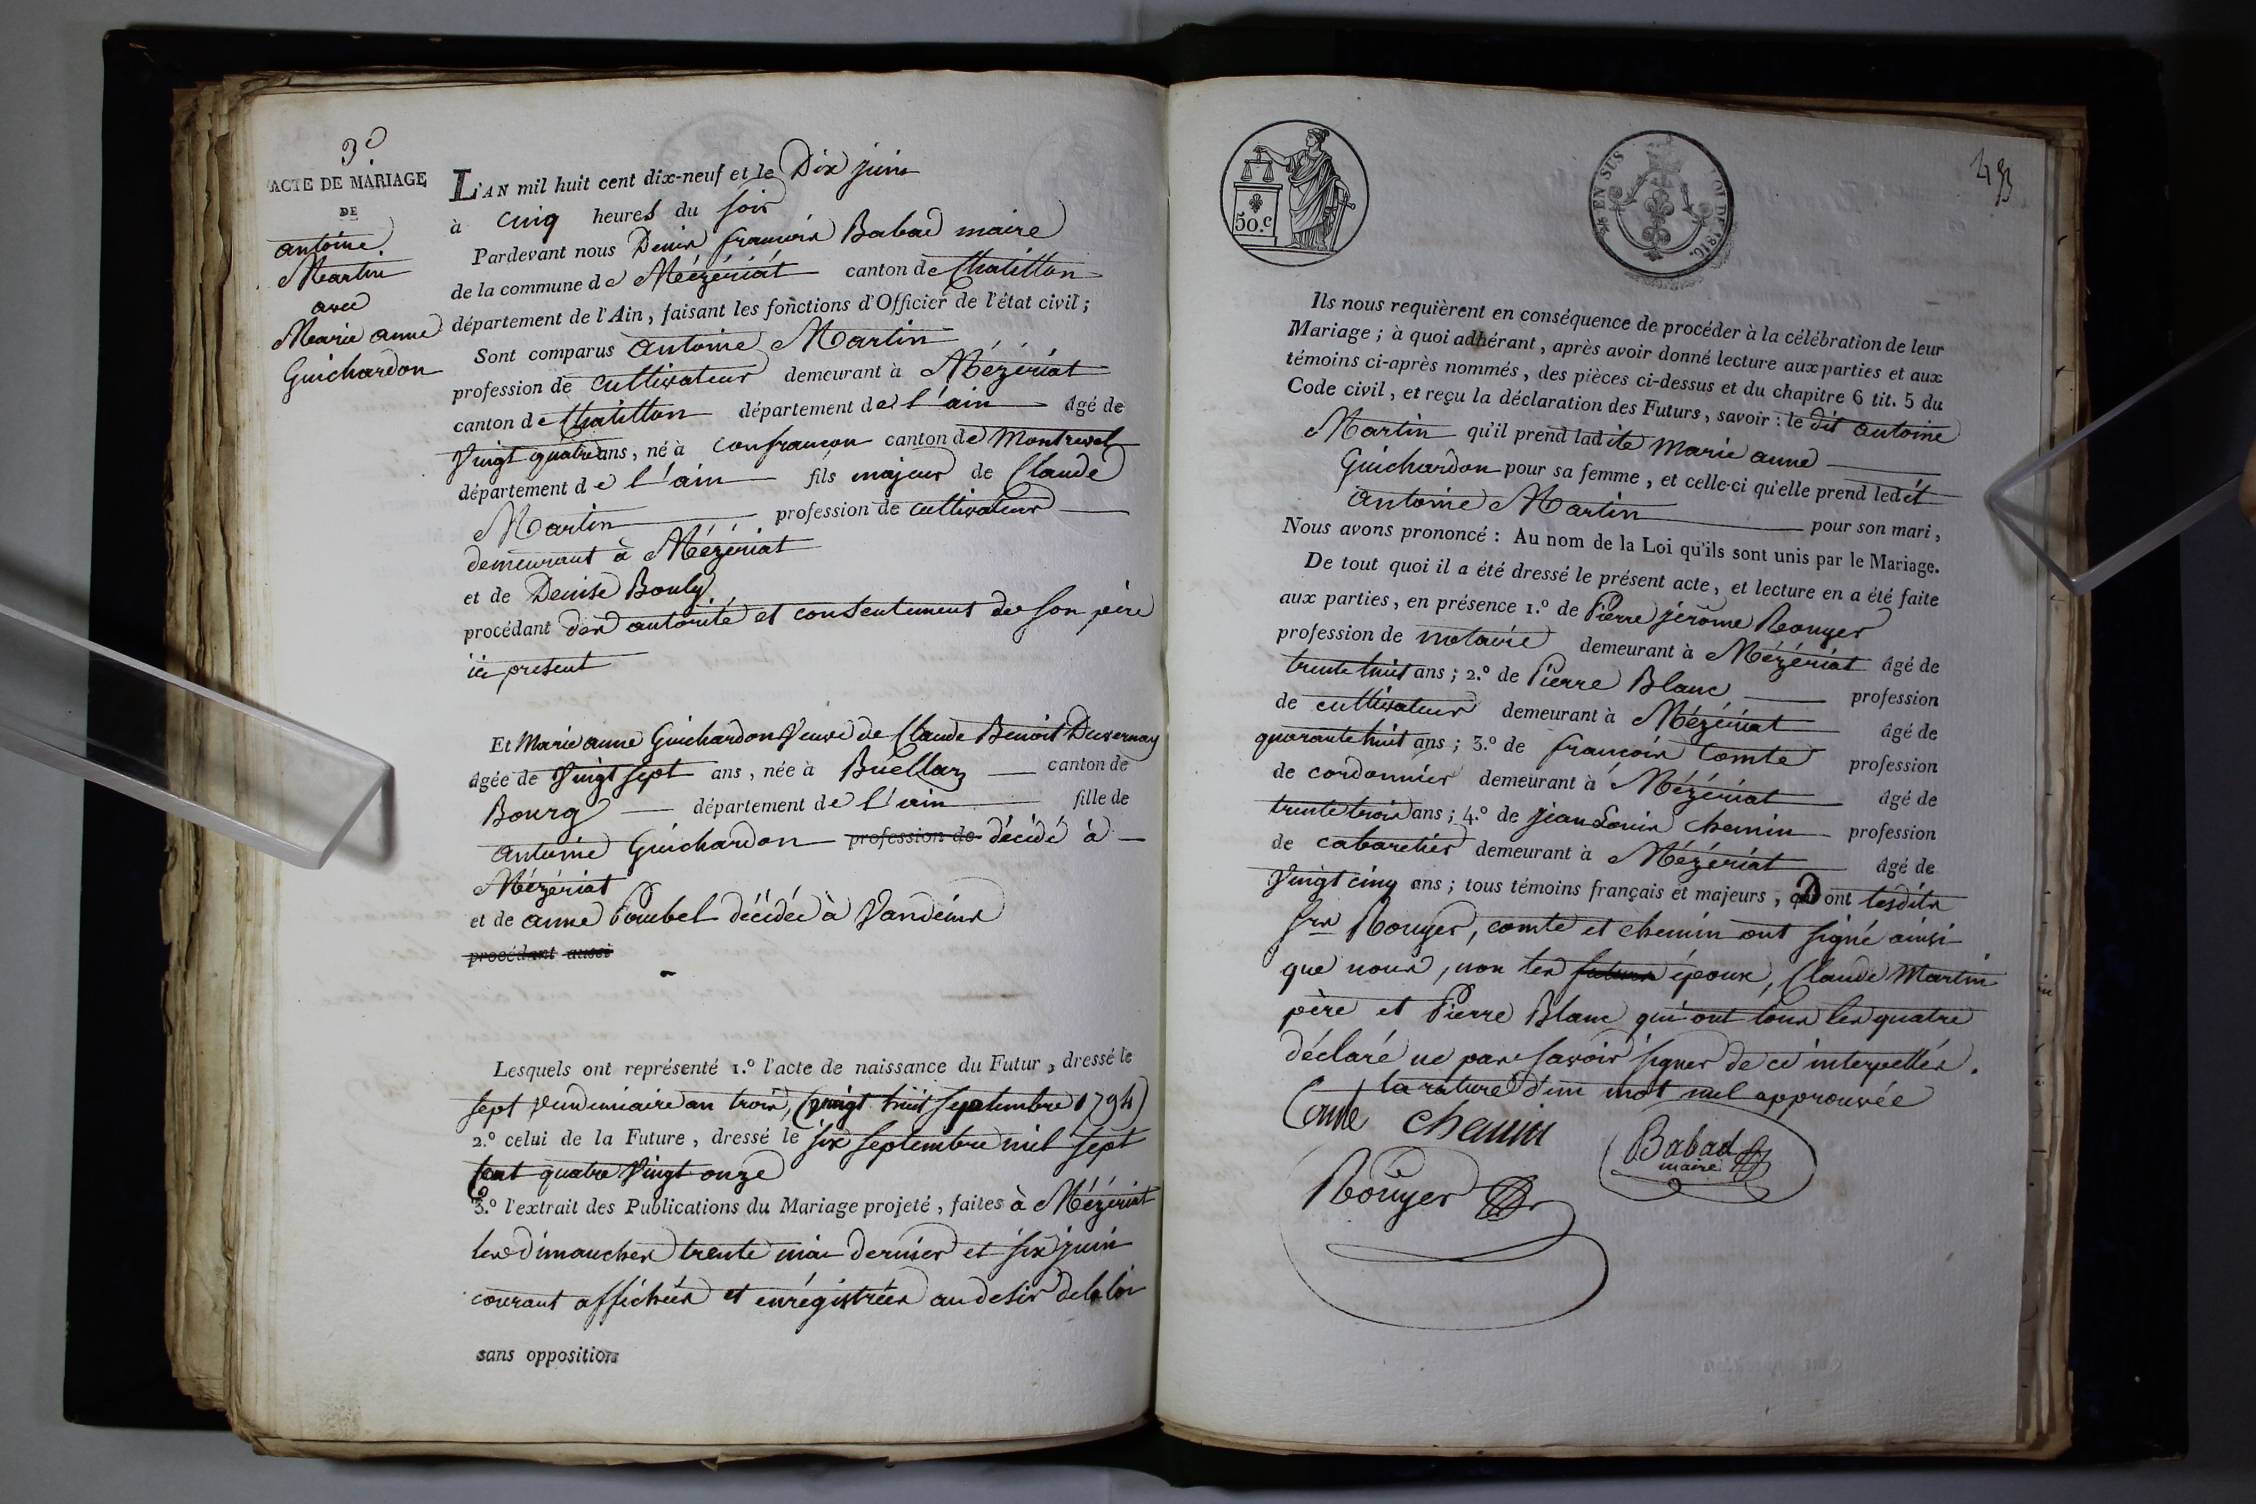 3e
ACTE DE MARIAGE
DE
antoine
Martin
avec
Marie anne
Guichardon
L'AN mil huit cent dix-neuf et le Dix juin
à cinq heures du soir
Pardevant nous Denis françois Babad maire
de la commune de Mézériat canton de Chatillon
département de l'Ain, faisant les fonctions d'Officier de l'état civil;
Sont comparus antoine Martin
profession de cultivateur demeurant à Mézériat
canton de Chatillon département de l'ain âgé de
Vingt quatre ans, né à confrancon canton de Montrevel
département de l'ain fils majeur de Claude
Martin profession de cultivateur
demeurant à Mézériat
et de Denise Bouly
procédant des autorité et consentement de son père
ici present
Et Marie anne Guichardon Veuve de Claude Benoit Duvernay
âgée de Vingt sept ans, née à Buellas canton de
Bourg département de l'ain fille de
antoine Guichardon profession de décidé à
Mézériat
et de anne Poubel décidée à Vandeins
procédant aussi
Lesquels ont représenté 1.º l'acte de naissance du Futur, dressé le
sept vendemiaire an trois, (vingt huit septembre 1794)
2.º celui de la Future, dressé le six septembre mil sept
cent quatre Vingt onze
3.º l'extrait des Publications du Mariage projeté, faites à Mézériat
les dimanches trente mai dernier et six juin
courant affichées et enrégistrées au desir de la loi
sans opposition
50.c
EN SUS
LOI DE 1816.
Ils nous requièrent en conséquence de procéder à la célébration de leur
Mariage; à quoi adhérant, après avoir donné lecture aux parties et aux
témoins ci-après nommés, des pièces ci-dessus et du chapitre 6 tit. 5 du
Code civil, et reçu la déclaration des Futurs, savoir: le dit antoine
Martin qu'il prend ladite Marie anne
Guichardon pour sa femme, et celle-ci qu'elle prend ledit
antoine Martin pour son mari,
Nous avons prononcé: Au nom de la Loi qu'ils sont unis par le Mariage.
De tout quoi il a été dressé le présent acte, et lecture en a été faite
aux parties, en présence 1.º de Pierre jérôme Rouyer
profession de notaire demeurant à Mézériat âgé de
trente huit ans; 2.º de Pierre Blanc profession
de cultivateur demeurant à Mézériat âgé de
quarante huit ans; 3.º de françois Comte profession
de cordonnier demeurant à Mézériat âgé de
trente trois ans; 4.º de jean Louis chemin profession
de cabaretier demeurant à Mézériat âgé de
Vingt cinq ans; tous témoins français et majeurs, Dont lesdits
Srs Rouyer, comte et chemin ont signé ainsi
que nous, non les futurs époux, Claude Martin
père et Pierre Blanc qui ont tous les quatre
déclaré ne pas savoir signer de ce interpellés.
la rature d'un mot nul approuvée
Comte chemin
Babad
maire
Rouyer